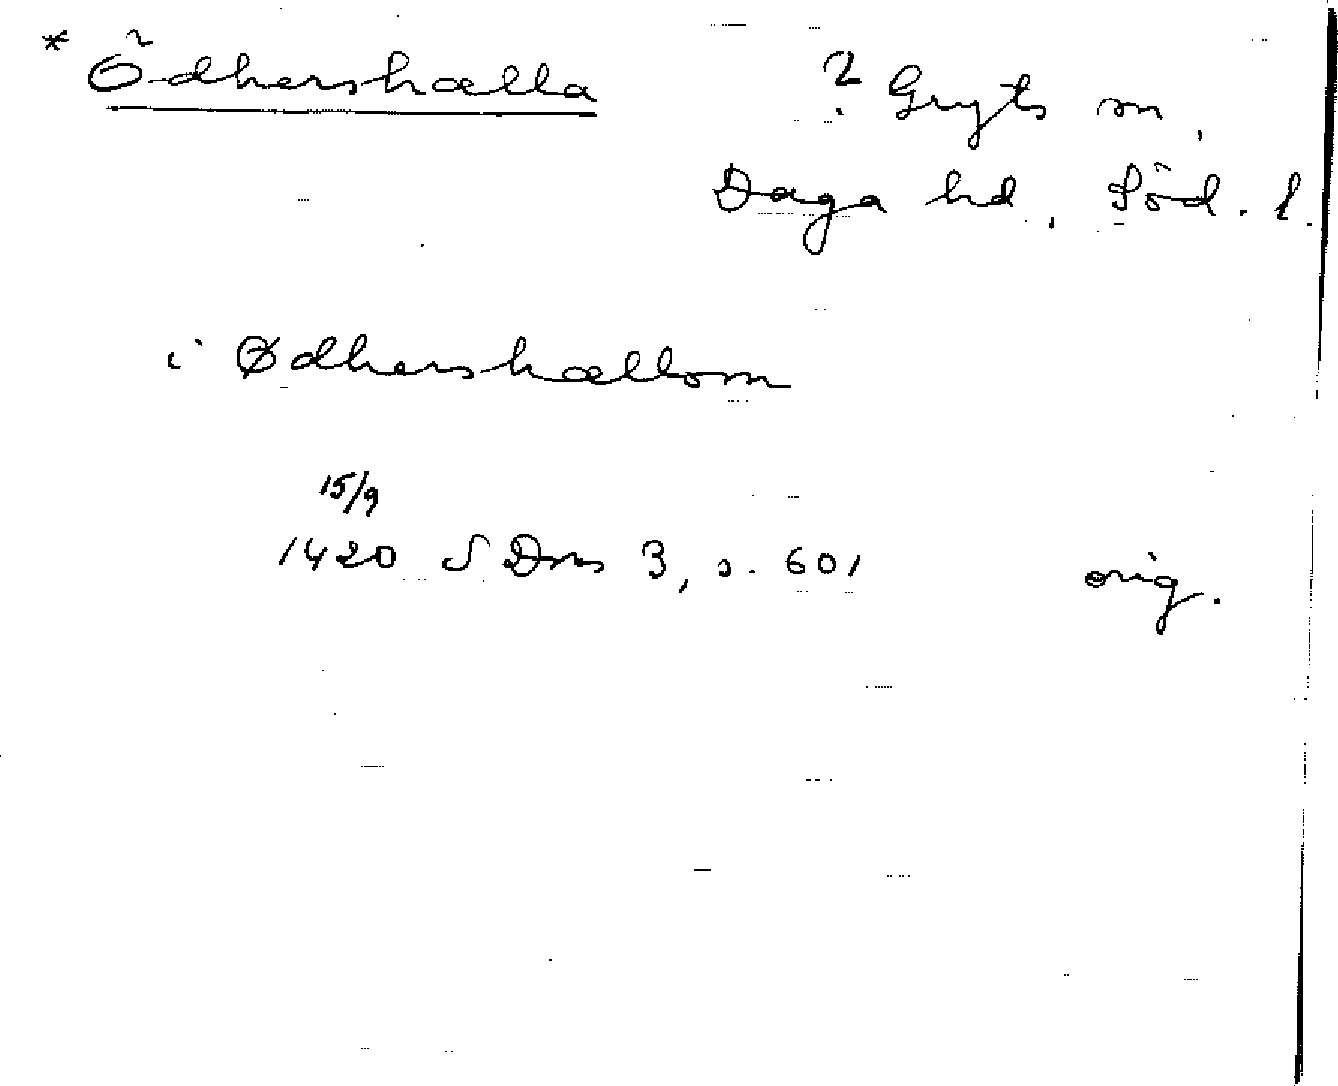 * Ödhershælla
? Gryts sn,
Daga hd, Söd. l.
i Ødhershællom
15/9
1420 SDns 3, s. 601 orig.